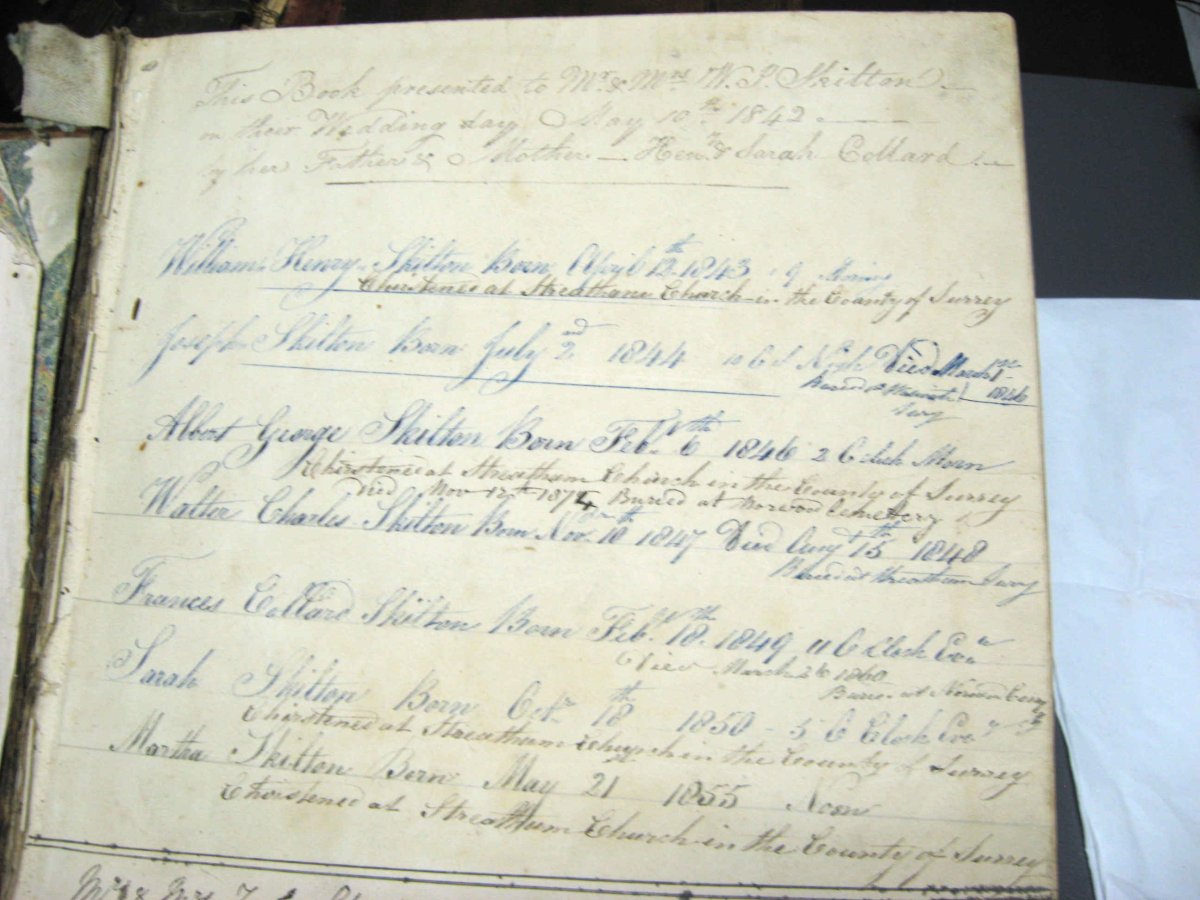 This Book presented to Mr & Mrs W. P. Skilton
on their Wedding day May 10th 1842
by her Father & Mother — Heny & Sarah Collard
William Henry Skilton Born April 12th 1843 9 Morning
Christened at Streatham Church in the County of Surrey
Joseph Skilton Born July 2nd 1844 Night Died March 1st
Buried at 1846
Albert George Skilton Born Feby 6th 1846 2 O Clock Morn
Chirstened at Streatham Church in the County of Surrey
Died Nov 12th 1874 Buried at Norwood Cemetery
Walter Charles Skilton Born Nov. 18th 1847 Died Augt 15th 1848
Buried at Streatham Surry
Frances Collard Skilton Born Feby 18th 1849 11 O Clock Evn
Died March 26 1860
Buried at Norwood Cemy
Sarah Skilton Born Octr 18th 1850 - 5 O Clock Evn
Chirstened at Streatham Church in the County of Surrey
Martha Skilton Born May 21 1855 Noon
Christened at Streatham Church in the County of Surrey
Mr & Mrs